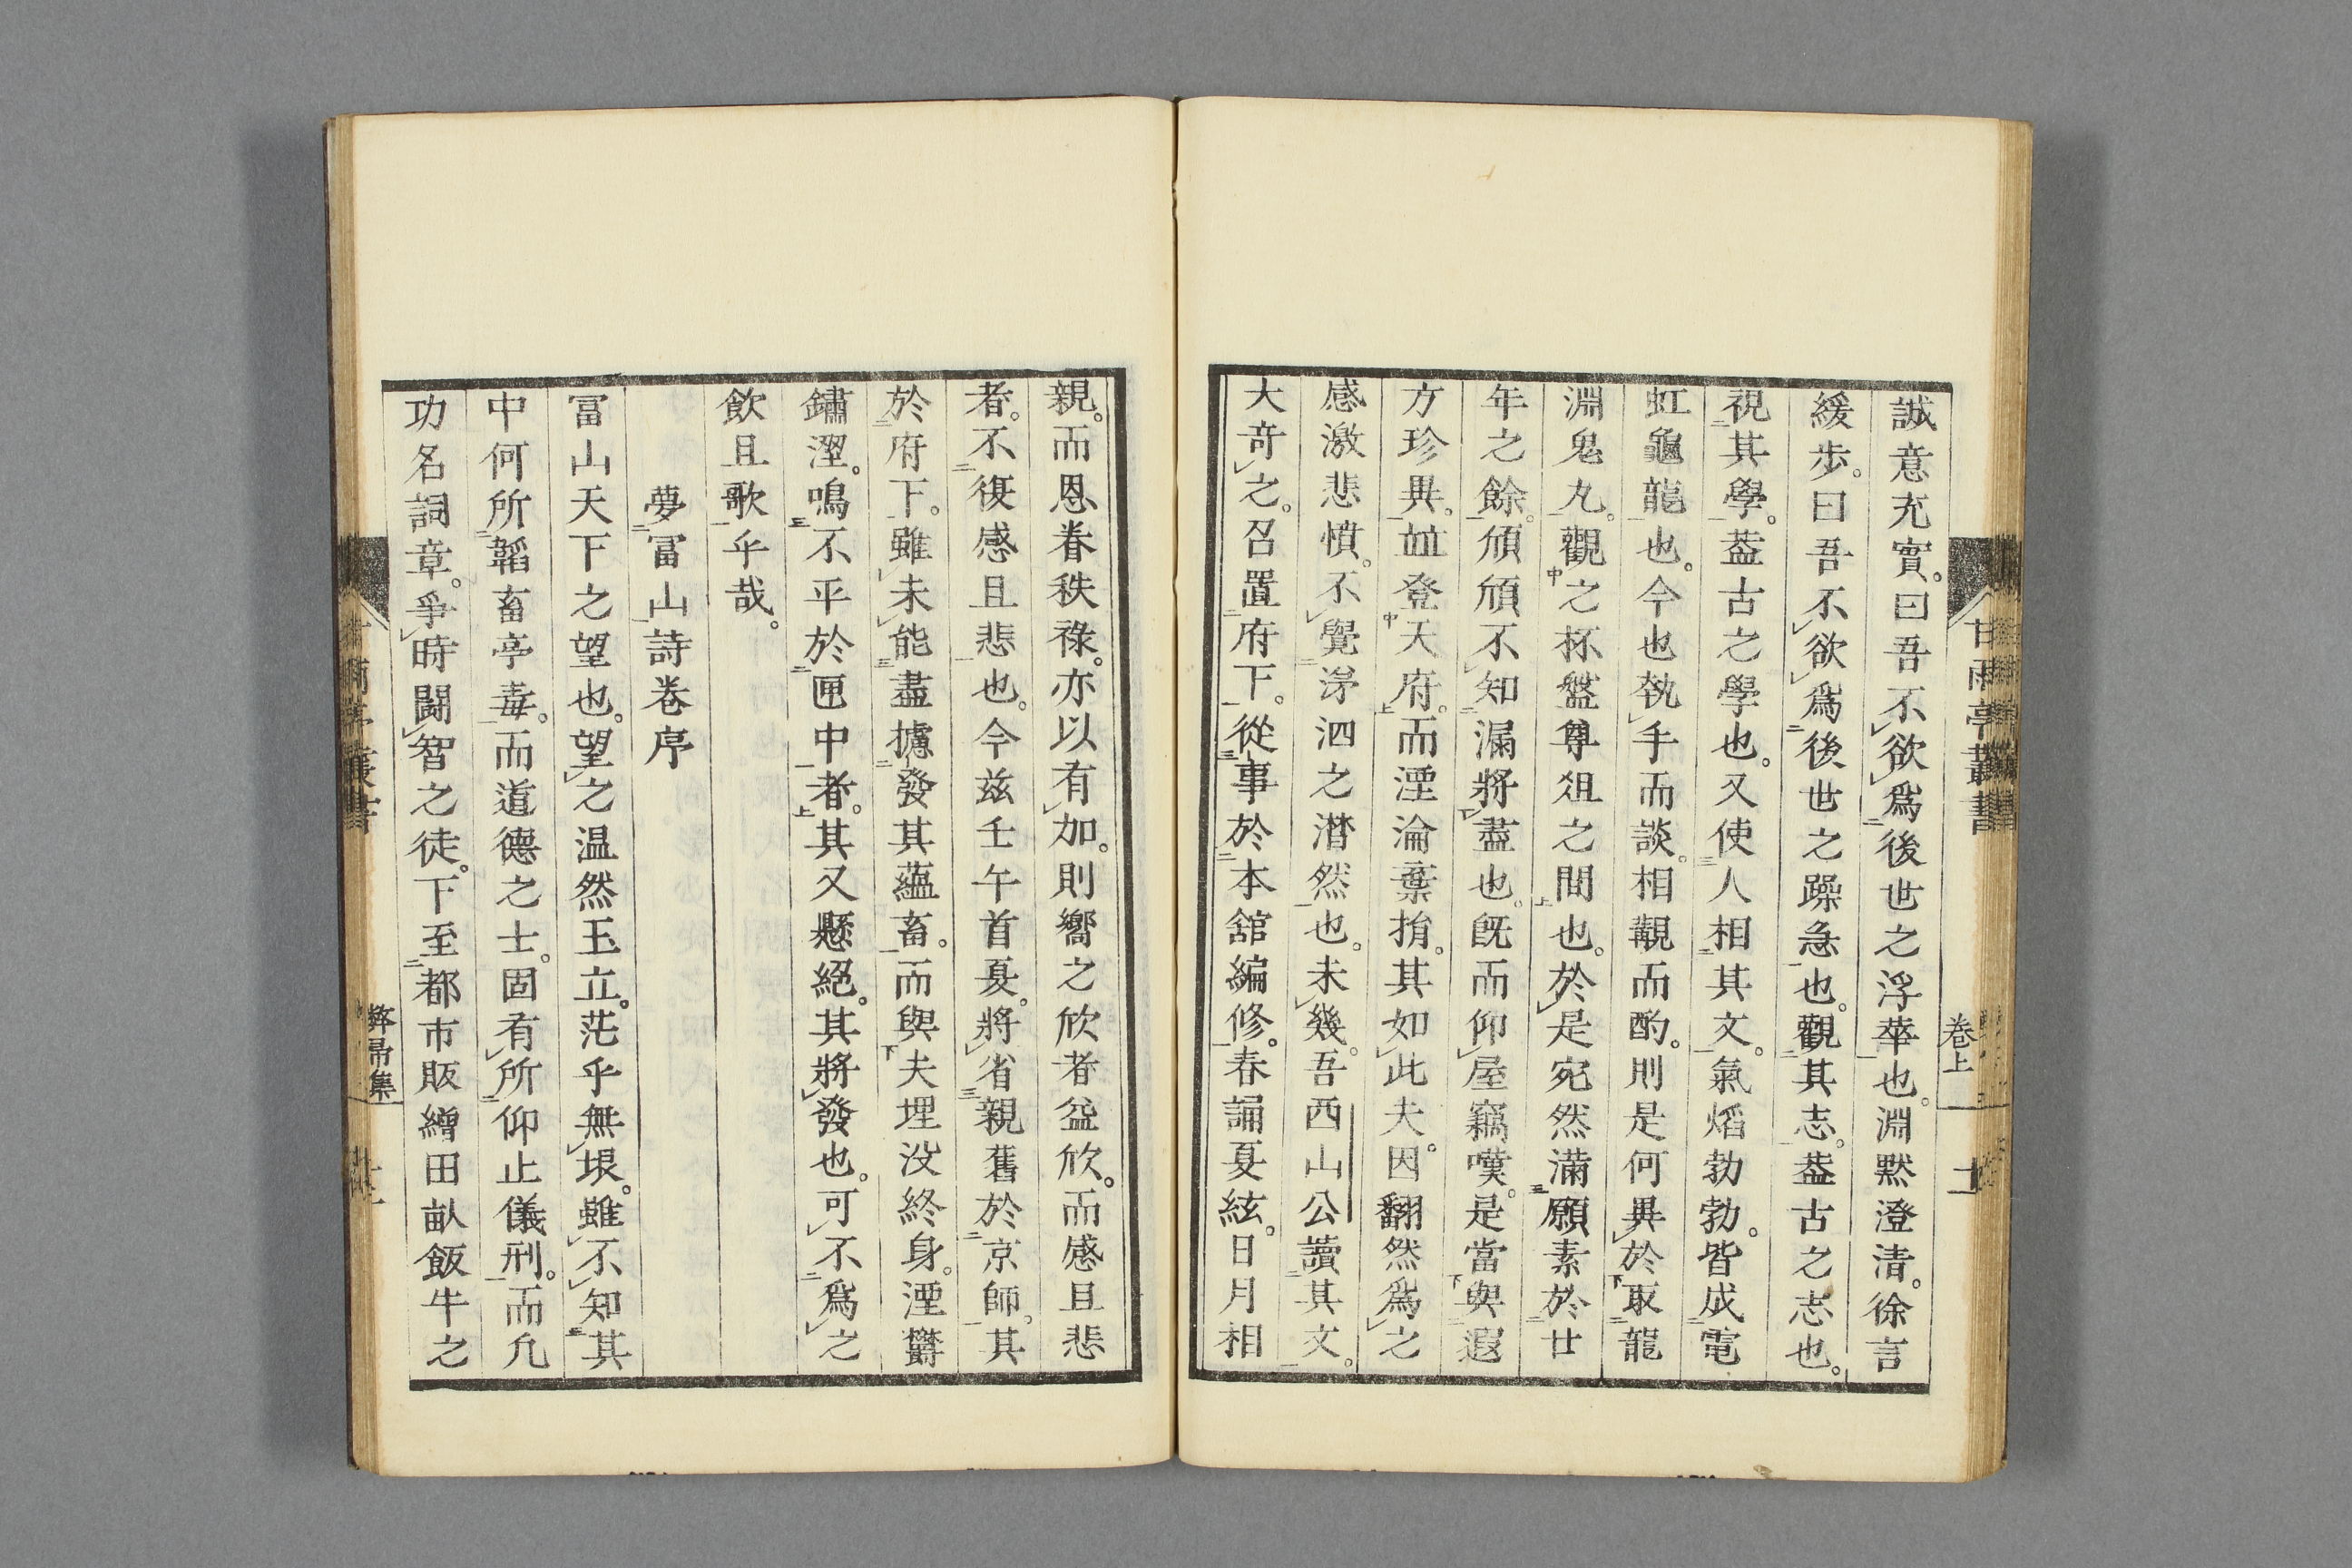 誠意充實。曰吾不欲爲後世之浮華也。淵默澄清。徐言
緩步。曰吾不欲爲後世之躁急也。觀其志。葢古之志也。
視其學。葢古之學也。又使人相其文。氣熖勃勃。皆成電
虹龜龍也。今也執手而談。相觀而酌。則是何異於取龍
淵鬼丸。觀之杯盤尊俎之間也。於是宛然滿願素於廿
年之餘。頎頎不知漏將盡也。既而仰屋竊嘆。是當與遐
方珍異。並登天府。而湮淪棄捐。其如此夫。因翻然爲之
感激悲憤。不覺涕泗之潸然也。未幾。吾西山公讀其文。
大奇之。召置府下。從事於本舘編修。春誦夏絃。日月相
甘雨亭叢書
卷上
十
親。而恩眷秩祿。亦以有加。則嚮之欣者益欣。而感且悲
者。不復感且悲也。今玆壬午首夏。將省親舊於京師。其
於府下。雖未能盡攄發其蘊畜。而與夫埋没終身。湮鬱
鏽澀。鳴不平於匣中者。其又懸絕。其將發也。可不爲之
飲且歌乎哉。
夢冨山詩卷序
冨山天下之望也。望之温然玉立。茫乎無垠。雖不知其
中何所韜畜亭毒。而道德之士。固有所仰止儀刑。而凢
功名詞章。爭時鬪智之徒。下至都市販繒田畝飯牛之
弊帚集